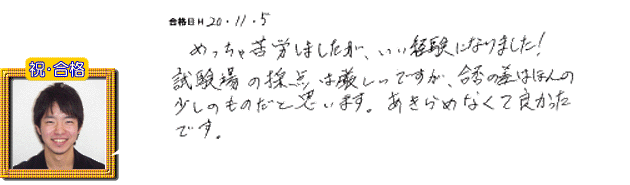 合格日 H 20・11・5
祝・合格
めっちゃ苦労しましたが、いい経験になりました!
試験場の採点は厳しいですが、合否の差はほんの
少しのものだと思います。あきらめなくて良かった
です。